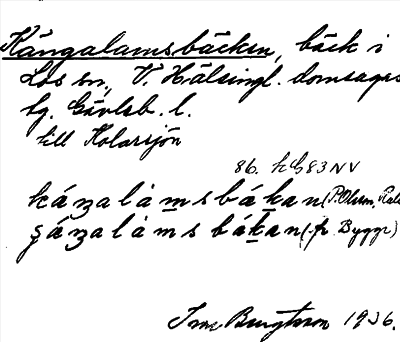 Kångalamsbäcken, bäck i
Los sn, V. Hälsingl. domsagas
tg. Gävleb. l.
till Kolarsjön
86. hG83NV
káŋalàmsbák̲an (P. Olsm,
şáŋalàmsbák̲an (p. Byggr)
Bengtsson 1936.